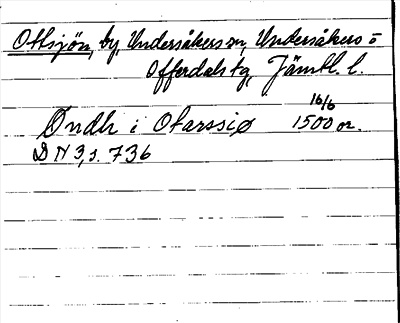 Ottsjön, by, Undersåkers sn, Undersåkers o
Offerdals tg, Jämtl. l.
Øndh i Otarssiø 16/6 1500 or.
DN 3, s. 736